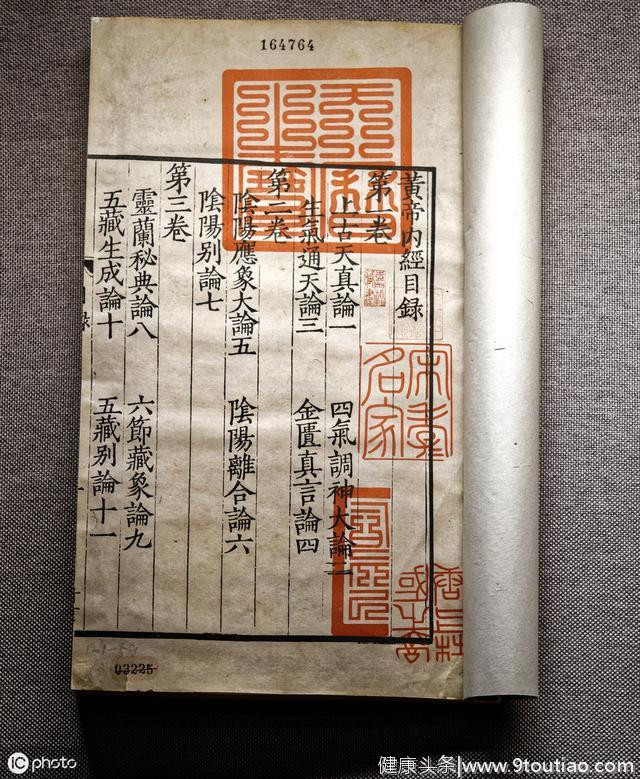 164764
黃帝內經目錄
第一卷
上古天真論一 四氣調神大論二
生氣通天論三 金匱真言論四
第二卷
陰陽應象大論五 陰陽離合論六
陰陽别論七
第三卷
靈蘭秘典論八 六節藏象論九
五藏生成論十 五藏别論十一
錄
03225
iC photo
健康头条/www.9toutiao.com